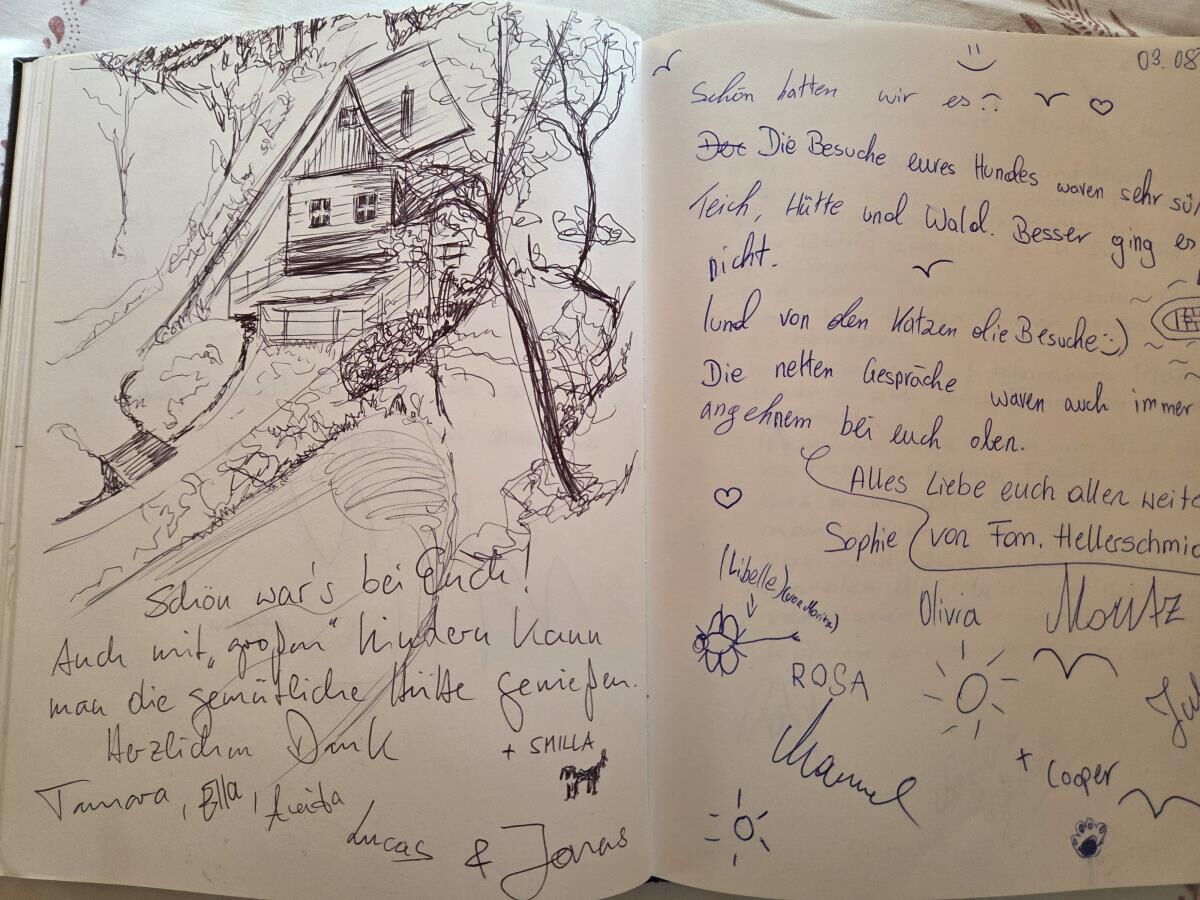 Schön war's bei Euch!
Auch mit „großen" Kindern kann
man die gemütliche Hütte genießen.
Herzlichen Dank
+ SMILLA
Tamara, Ella,
Lucas & Jonas
03.08
Schön hatten wir es
Die Besuche eures Hundes waren sehr sü
Teich, Hütte und Wald. Besser ging es
nicht.
(und von den Katzen die Besuche :))
Die netten Gespräche waren auch immer
angehnem bei euch oben.
Alles Liebe euch allen weite
Sophie von Fam. Hellerschmid
(Libelle) (von Moritz)
Olivia Moritz
ROSA
Manuel
+ Cooper